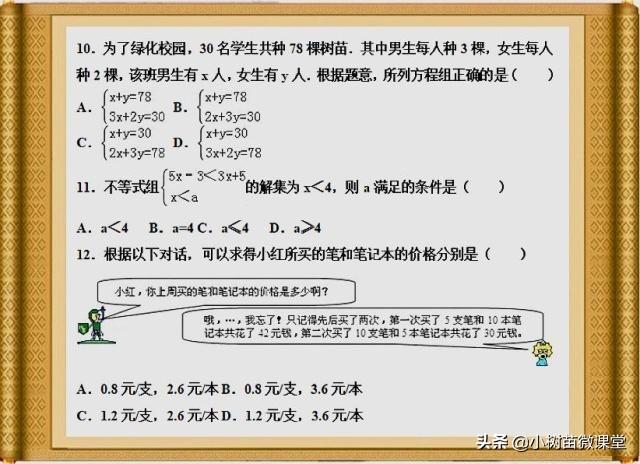 10．为了绿化校园，30名学生共种78棵树苗．其中男生每人种3棵，女生每人
种2棵，该班男生有x人，女生有y人．根据题意，所列方程组正确的是（　　）
A．{x+y=78 3x+2y=30 B．{x+y=78 2x+3y=30
C．{x+y=30 2x+3y=78 D．{x+y=30 3x+2y=78
11．不等式组{5x－3＜3x+5 x＜a 的解集为x＜4，则a满足的条件是（　　）
A．a＜4 B．a=4 C．a≤4 D．a≥4
12．根据以下对话，可以求得小红所买的笔和笔记本的价格分别是（　　）
小红，你上周买的笔和笔记本的价格是多少啊？
哦，…，我忘了！只记得先后买了两次，第一次买了5支笔和10本笔
记本共花了42元钱，第二次买了10支笔和5本笔记本共花了30元钱。
A．0.8元/支，2.6元/本 B．0.8元/支，3.6元/本
C．1.2元/支，2.6元/本 D．1.2元/支，3.6元/本
头条 @小树苗微课堂